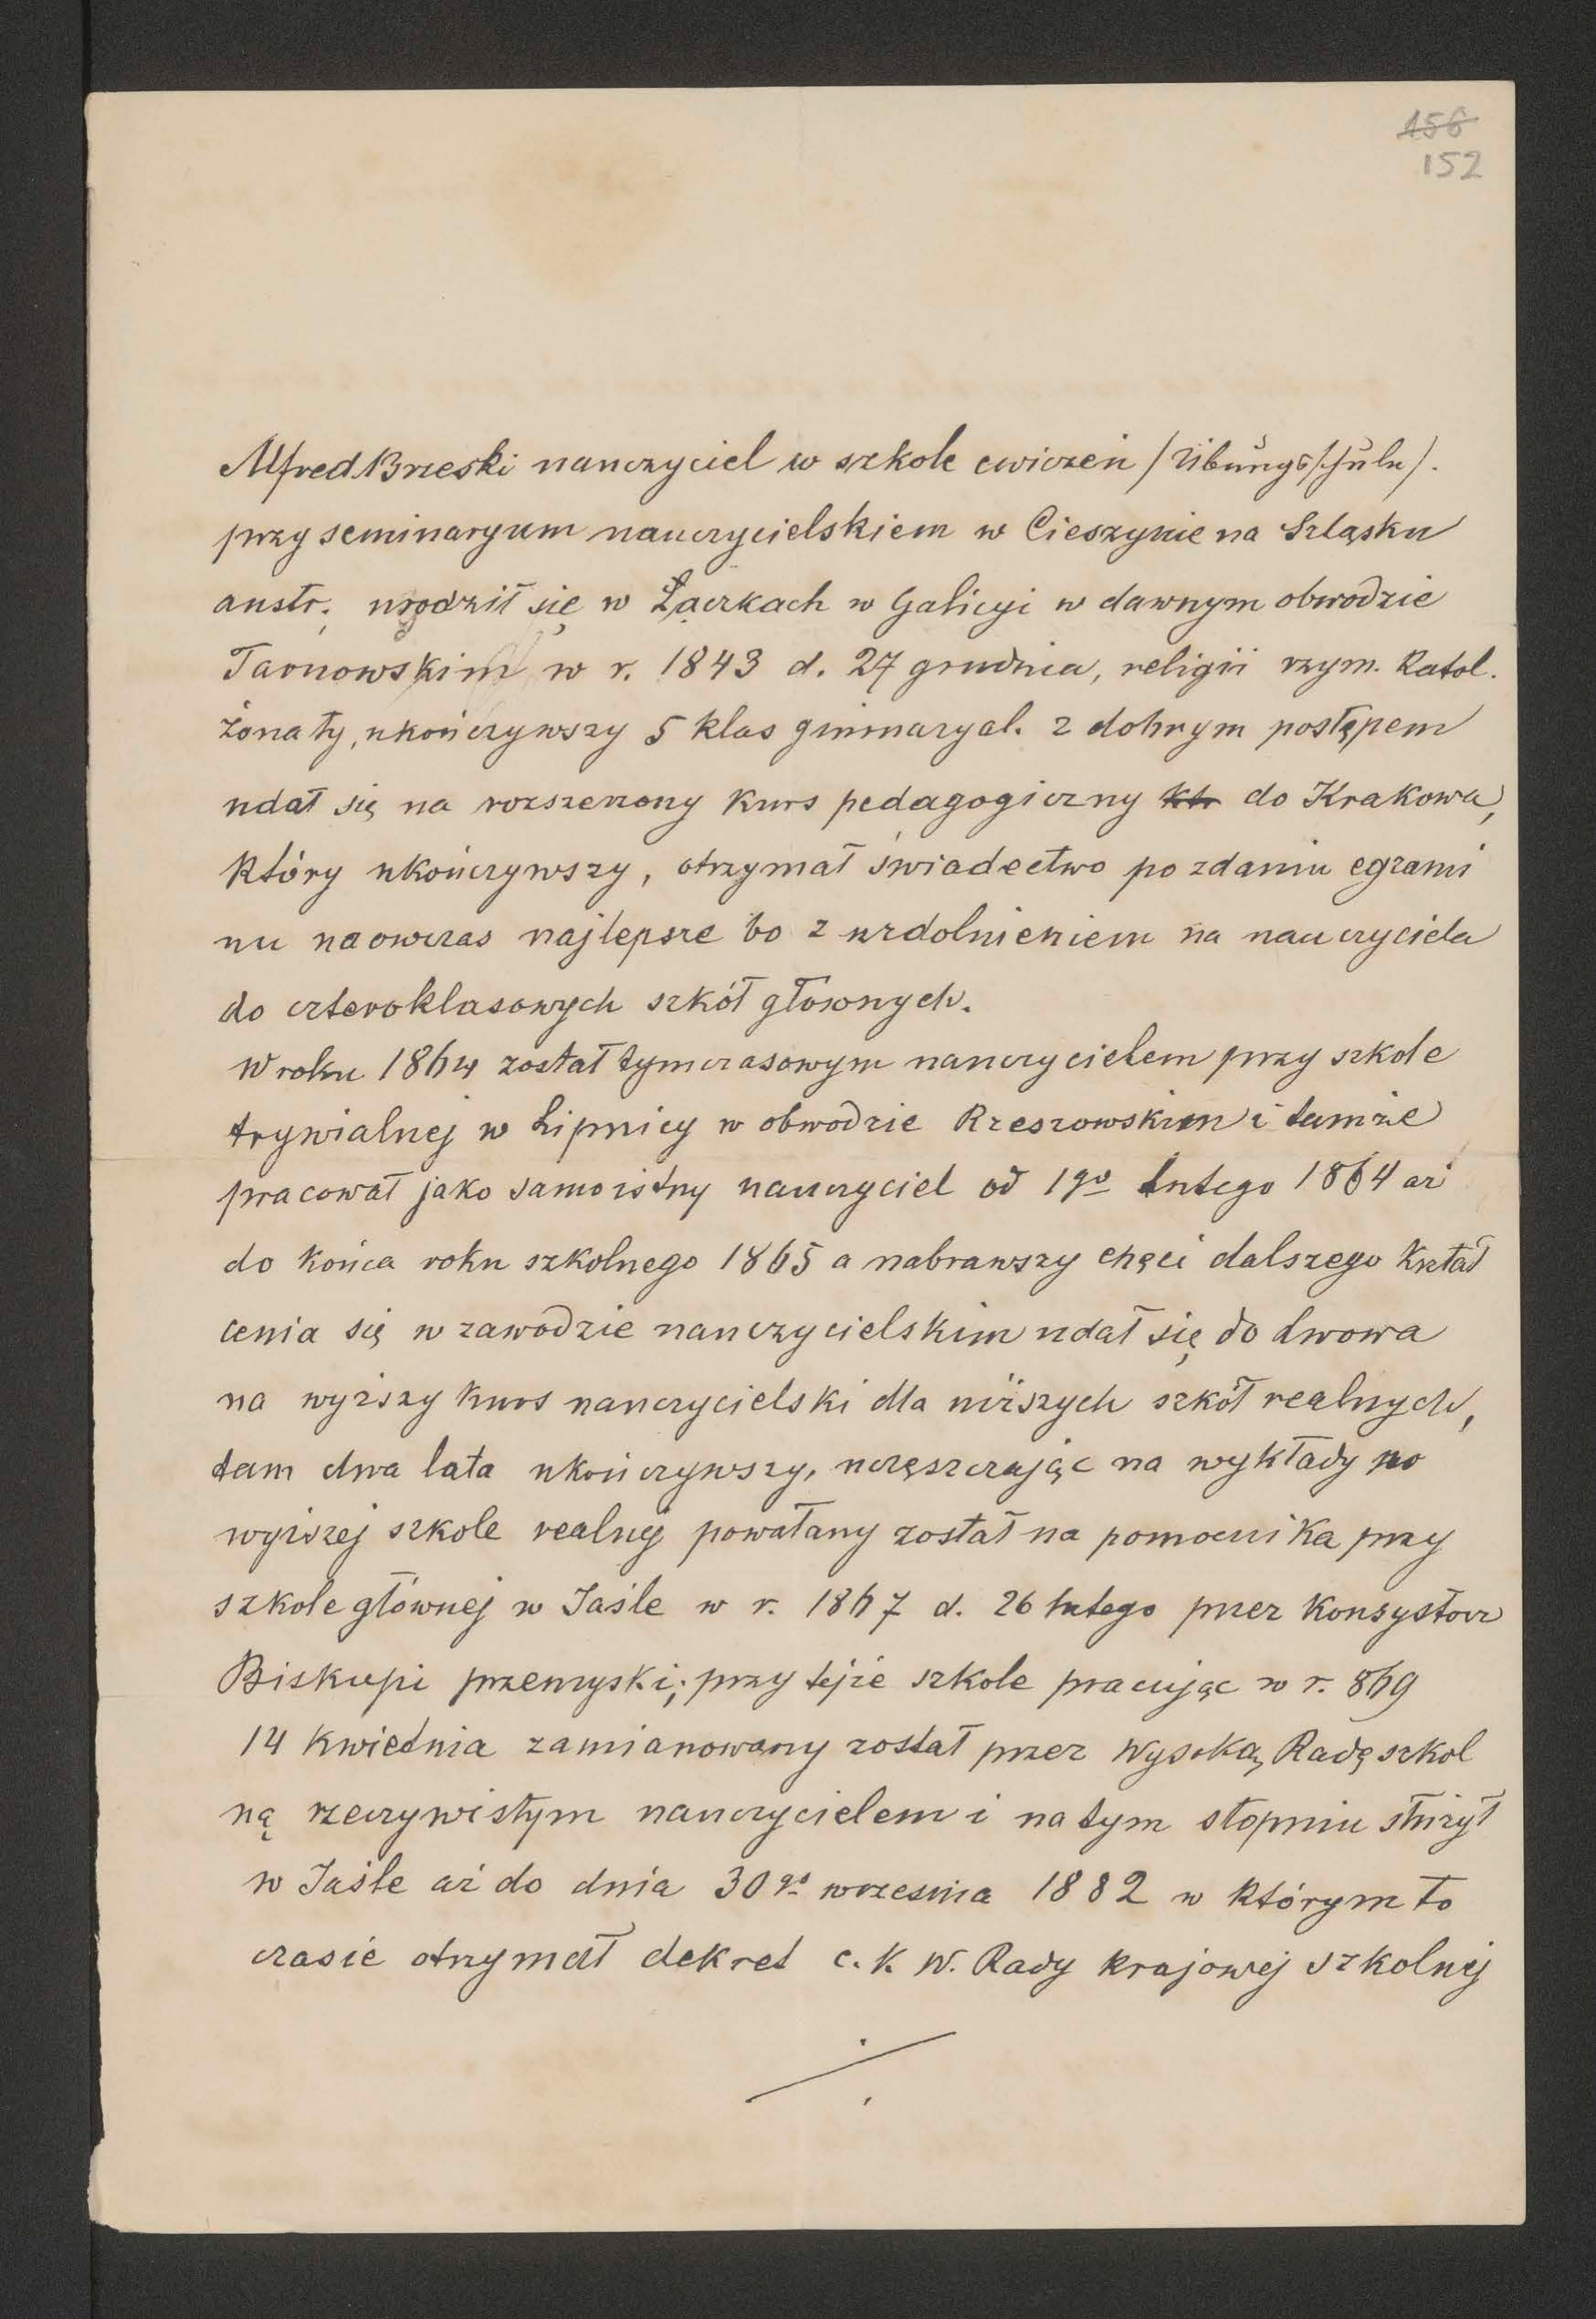 156
152
Alfred Brzeski nauczyciel w szkole cwiczeń /Übungsschule/.
przy seminaryum nauczycielskiem w Cieszynie na Szląsku
austr. urodził się w Łączkach w Galicyi w dawnym obwodzie
Tarnowskim w r. 1843 d. 27 grudnia, religii rzym. katol.
żonaty, ukończywszy 5 klas gimnazyal. z dobrym postępem
udał się na rozszerzony kurs pedagogiczny ktr do Krakowa,
który ukończywszy, otrzymał świadectwo po zdaniu egzami
nu naowczas najlepsze bo z uzdolnieniem na nauczyciela
do czteroklasowych szkół głownych.
W roku 1864 został tymczasowym nauczycielem przy szkole
trywialnej w Lipnicy w obwodzie Rzeszowskim i tamże
pracował jako samoistny nauczyciel od 1go lutego 1864 aż
do końca roku szkolnego 1865 a nabrawszy chęci dalszego kształ
cenia się w zawodzie nauczycielskim udał się do Lwowa
na wyższy kurs nauczycielski dla niższych szkół realnych,
tam dwa lata ukończywszy, uczęszczając na wykłady w
wyższej szkole realnej powałany został na pomocnika przy
szkole głównej w Jaśle w r. 1867 d. 26 lutego przez Konsystorz
Biskupi przemyski; przy tejże szkole pracując w r. 869
14 kwietnia zamianowany został przez Wysoką Radę szkol
ną rzeczywistym nauczycielem i na tym stopniu służył
w Jaśle aż do dnia 30go wrzesnia 1882 w którym to
czasie otrzymał dekret c. k. W. Rady krajowej szkolnej